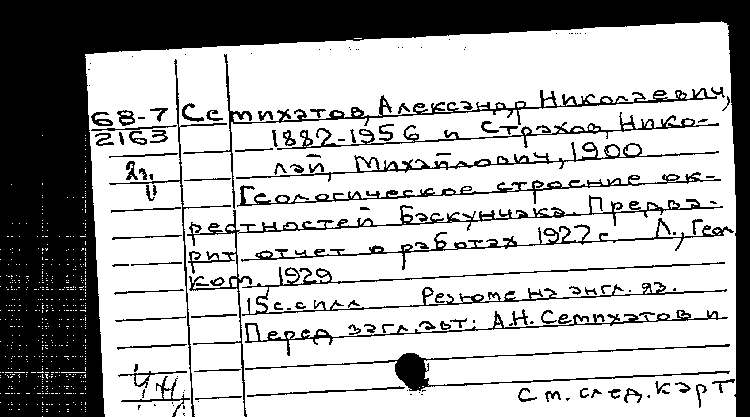 68-7 Семихатов, Александр Николаевич,
2163 1882-1956 и Страхов, Нико-
лай, Михайлович, 1900
Геологическое строение ок-
рестностей Баскунчака. Предва-
рит. отчет о работах 1927 г. Л., Геол.
ком., 1929.
15 с. с илл. Резюме на англ. яз.
Перед загл. авт.: А.Н. Семихатов и
См. след. карт.